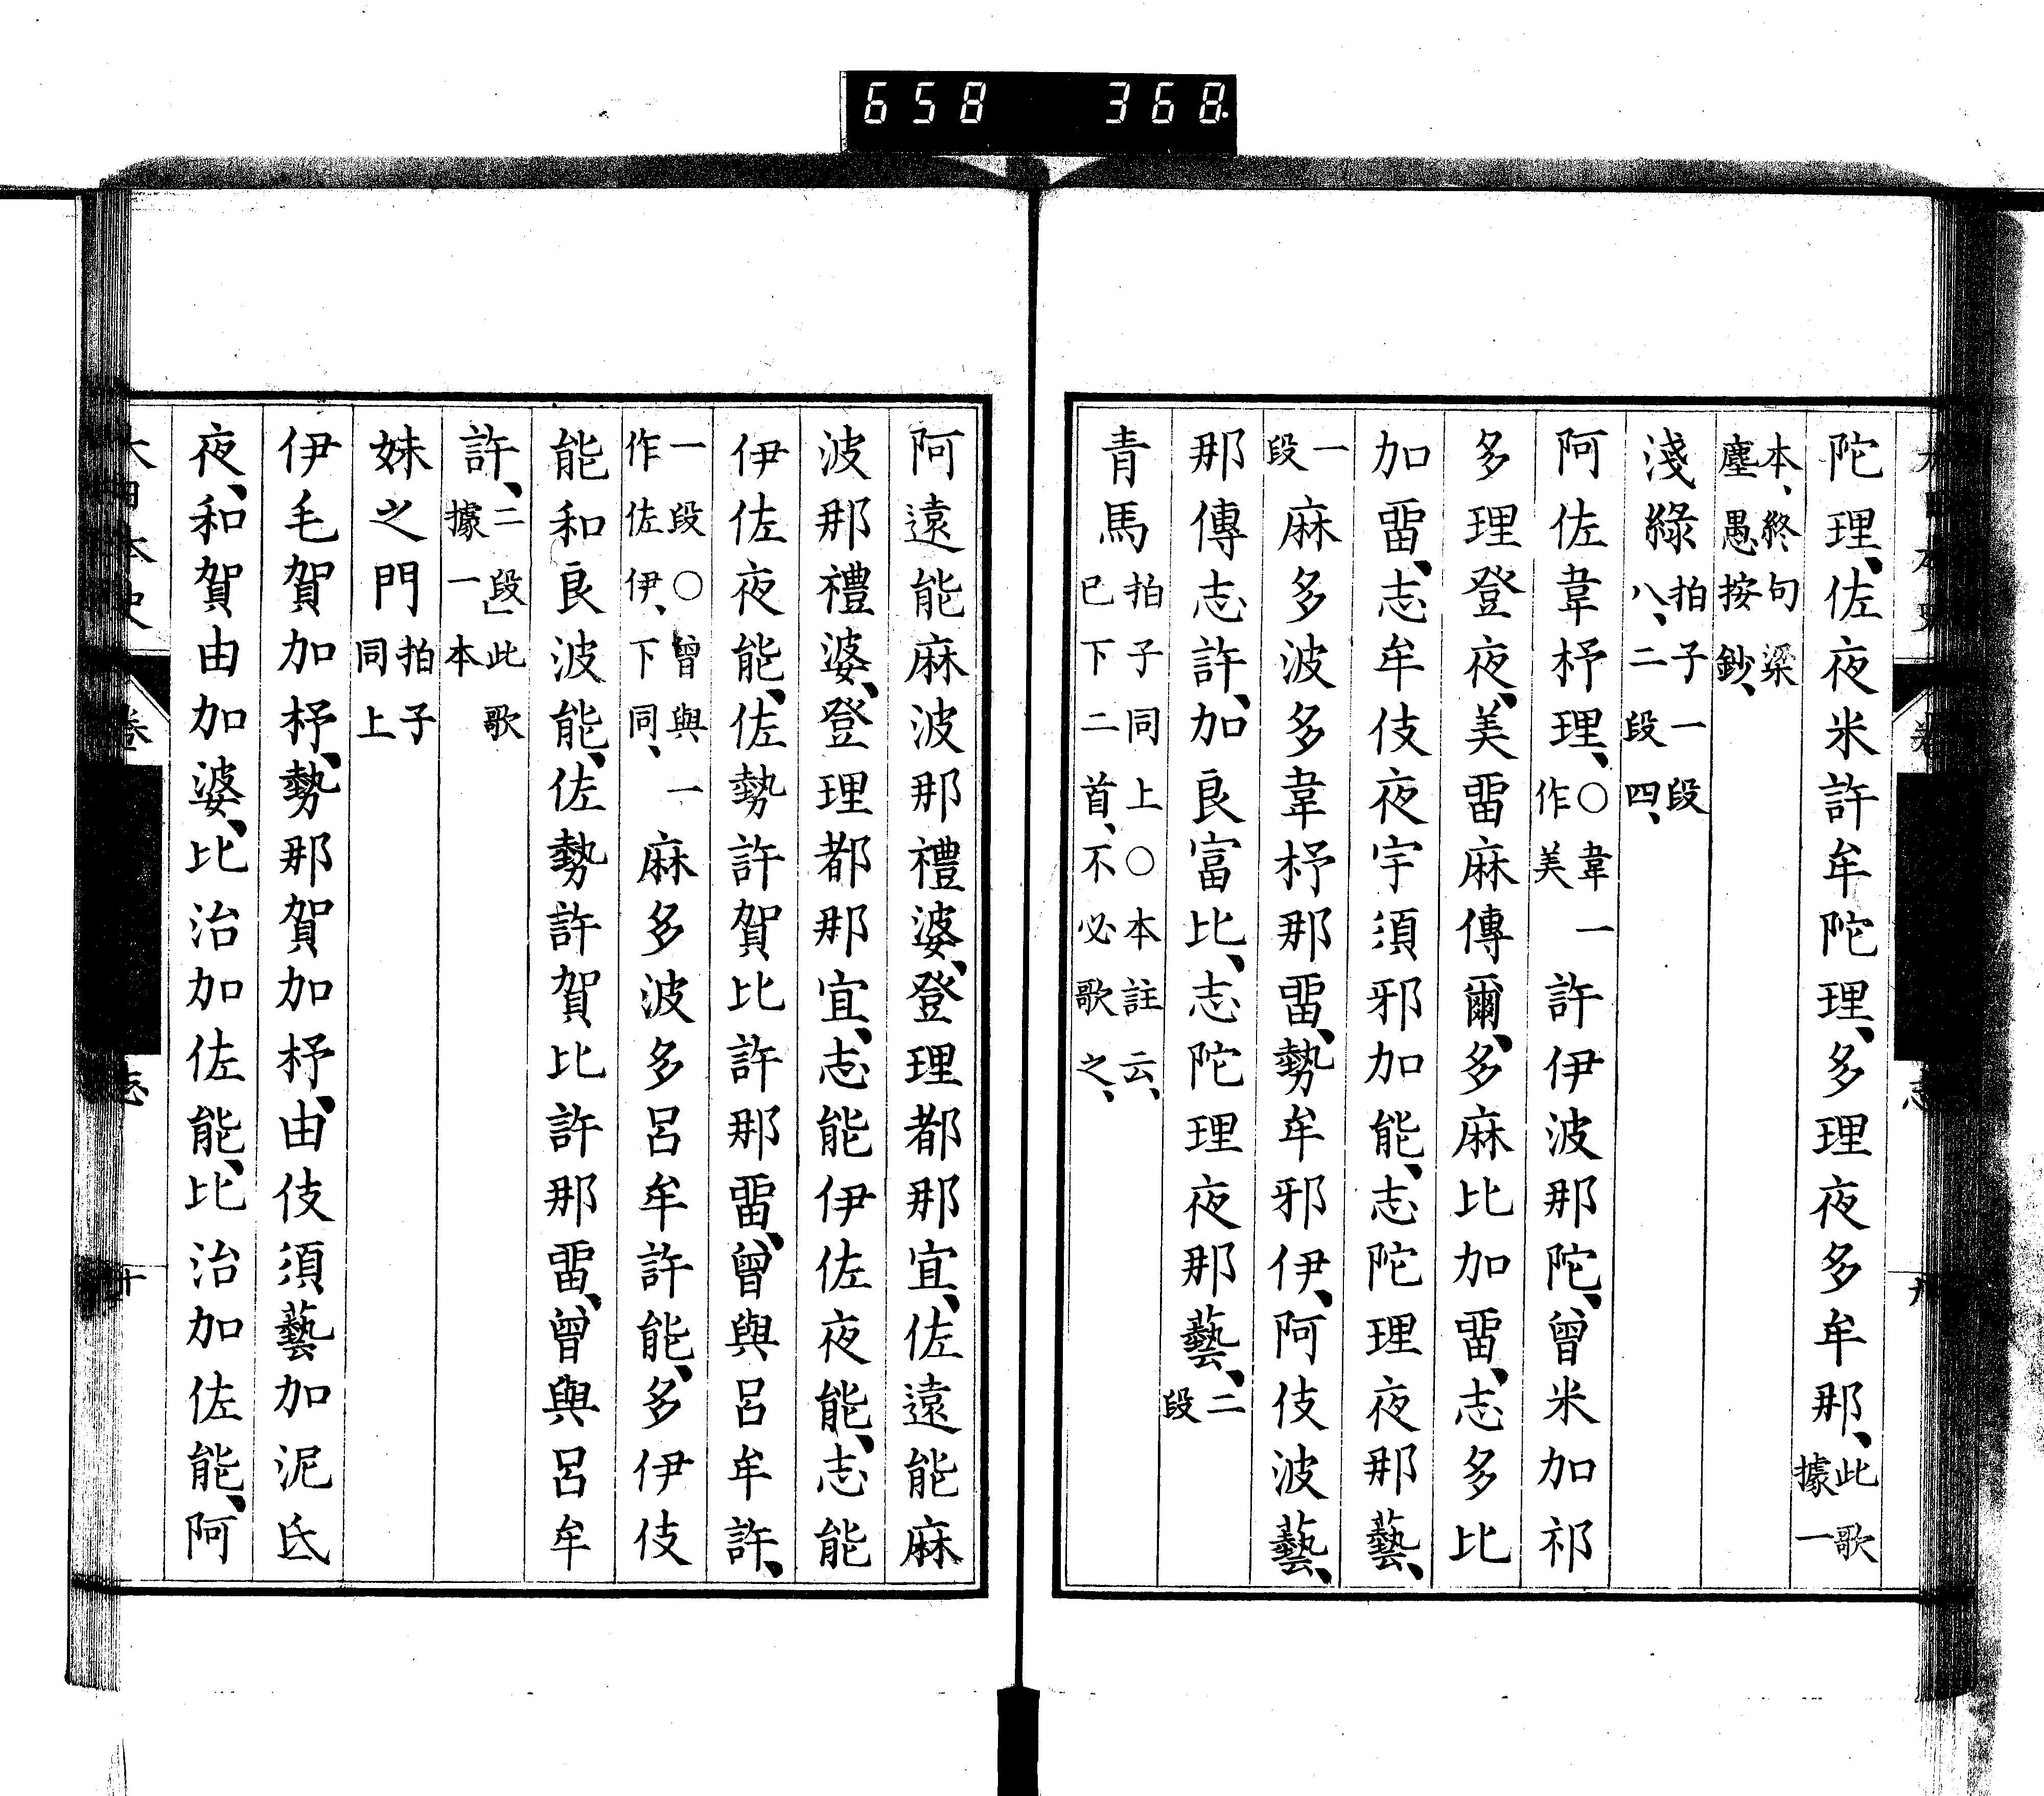 658 368
陀理、佐夜米許牟陀理、多理夜多牟那、此歌據一
本、終句梁塵愚按鈔、
淺綠 拍子一段八、二段四、
阿佐韋杼理、○韋一作美 許伊波那陀、曾米加祁
多理登夜、美畱麻傳爾、多麻比加畱、志多比
加畱、志牟伎夜宇須邪加能、志陀理夜那藝、
一段 麻多波多韋杼那畱、勢牟邪伊、阿伎波藝、
那傳志許、加良富比、志陀理夜那藝、二段
青馬 拍子同上○本註云、已下二首、不必歌之、
阿遠能麻波那禮婆、登理都那宜、佐遠能麻
波那禮婆、登理都那宜、志能伊佐夜能、志能
伊佐夜能、佐勢許賀比許那畱、曾與呂牟許、
一段○曾與一作佐伊、下同、 麻多波多呂牟許能、多伊伎
能和良波能、佐勢許賀比許那畱、曾與呂牟
許、二段此歌據一本
妹之門 拍子同上
伊毛賀加杼、勢那賀加杼、由伎須藝加泥氐
夜、和賀由加婆、比治加佐能、比治加佐能、阿